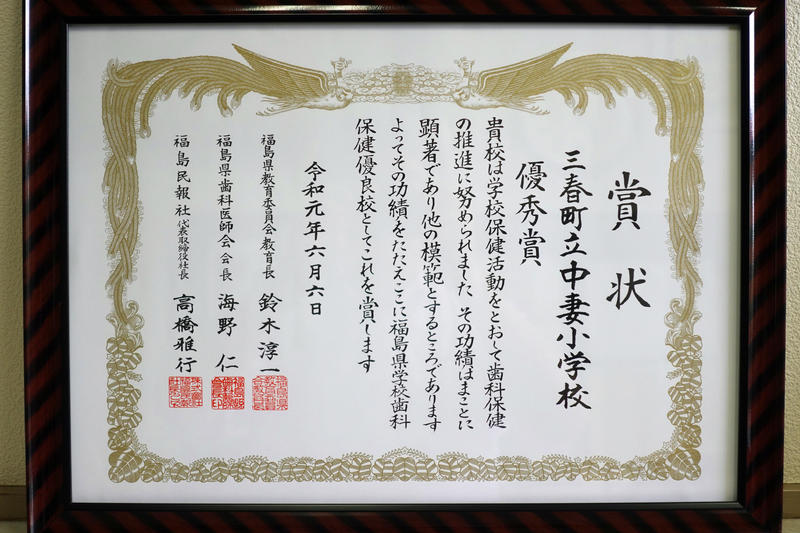 賞状
三春町立中妻小学校
優秀賞
貴校は学校保健活動をとおして歯科保健
の推進に努められました その功績はまことに
顕著であり他の模範とするところであります
よってその功績をたたえここに福島県学校歯科
保健優良校としてこれを賞します
令和元年六月六日
福島県教育委員会教育長 鈴木淳一
福島県歯科医師会会長 海野仁
福島民報社代表取締役社長 高橋雅行